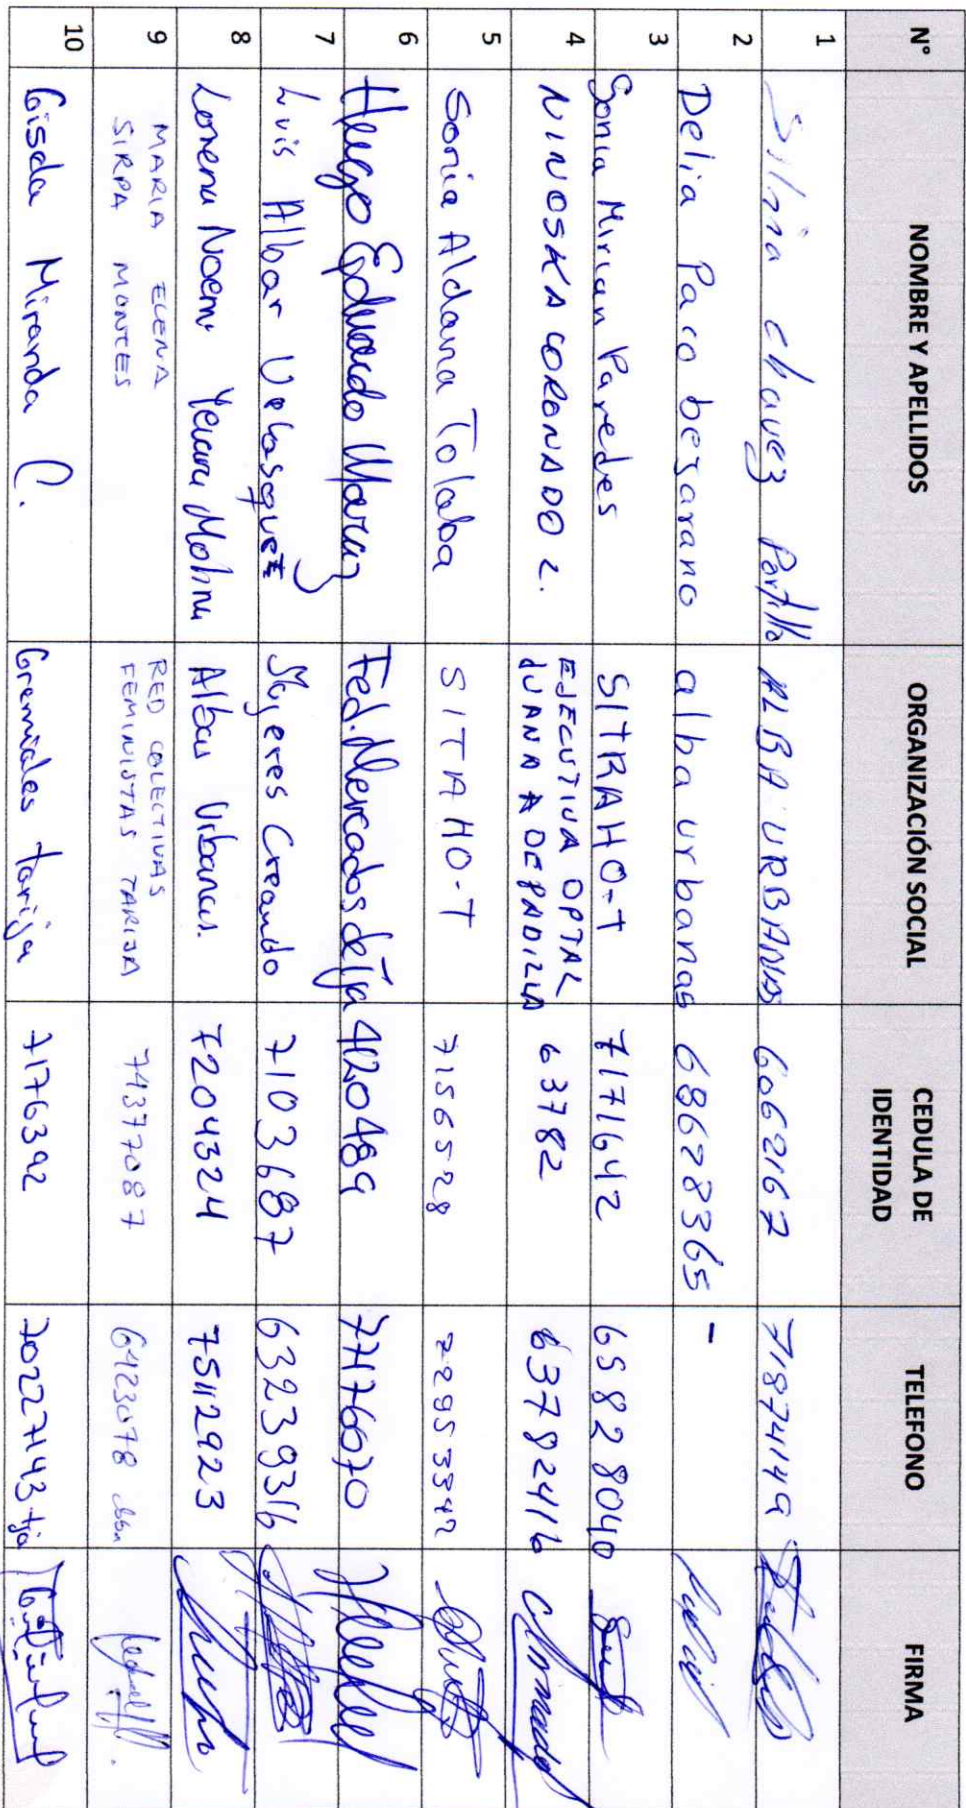 N° NOMBRE Y APELLIDOS ORGANIZACIÓN SOCIAL CEDULA DE IDENTIDAD TELEFONO FIRMA
1 Silvia chavez Portillo ALBA URBANAS 6062167 71874149
2 Delia Paco bejarano alba urbanas 68678365 -
3 Sonia Mirian Paredes SITRAHO-T 7171642 65828040
4 NINOSKA CORONADO Z. EJECUTIVA DPTAL
JUANA A DE PADILLA 63782 63782416
5 Sonia Aldana Tolaba SITAHO-T 7156528 72953342
6 Hugo Eduardo Fed. Mercados de Tja 4120489 77176070
7 Luis Albar Velasquez Mujeres Creando 7103687 63239316
8 Lorena Noemi Molina Albas Urbanas. 7204324 75112923
9 MARIA ELENA
SIRPA MONTES RED COLECTIVAS
FEMINISTAS TARIJA 74377087 6423078
10 Gisela Miranda C. Gremiales tarija 7176392 702277143 tja